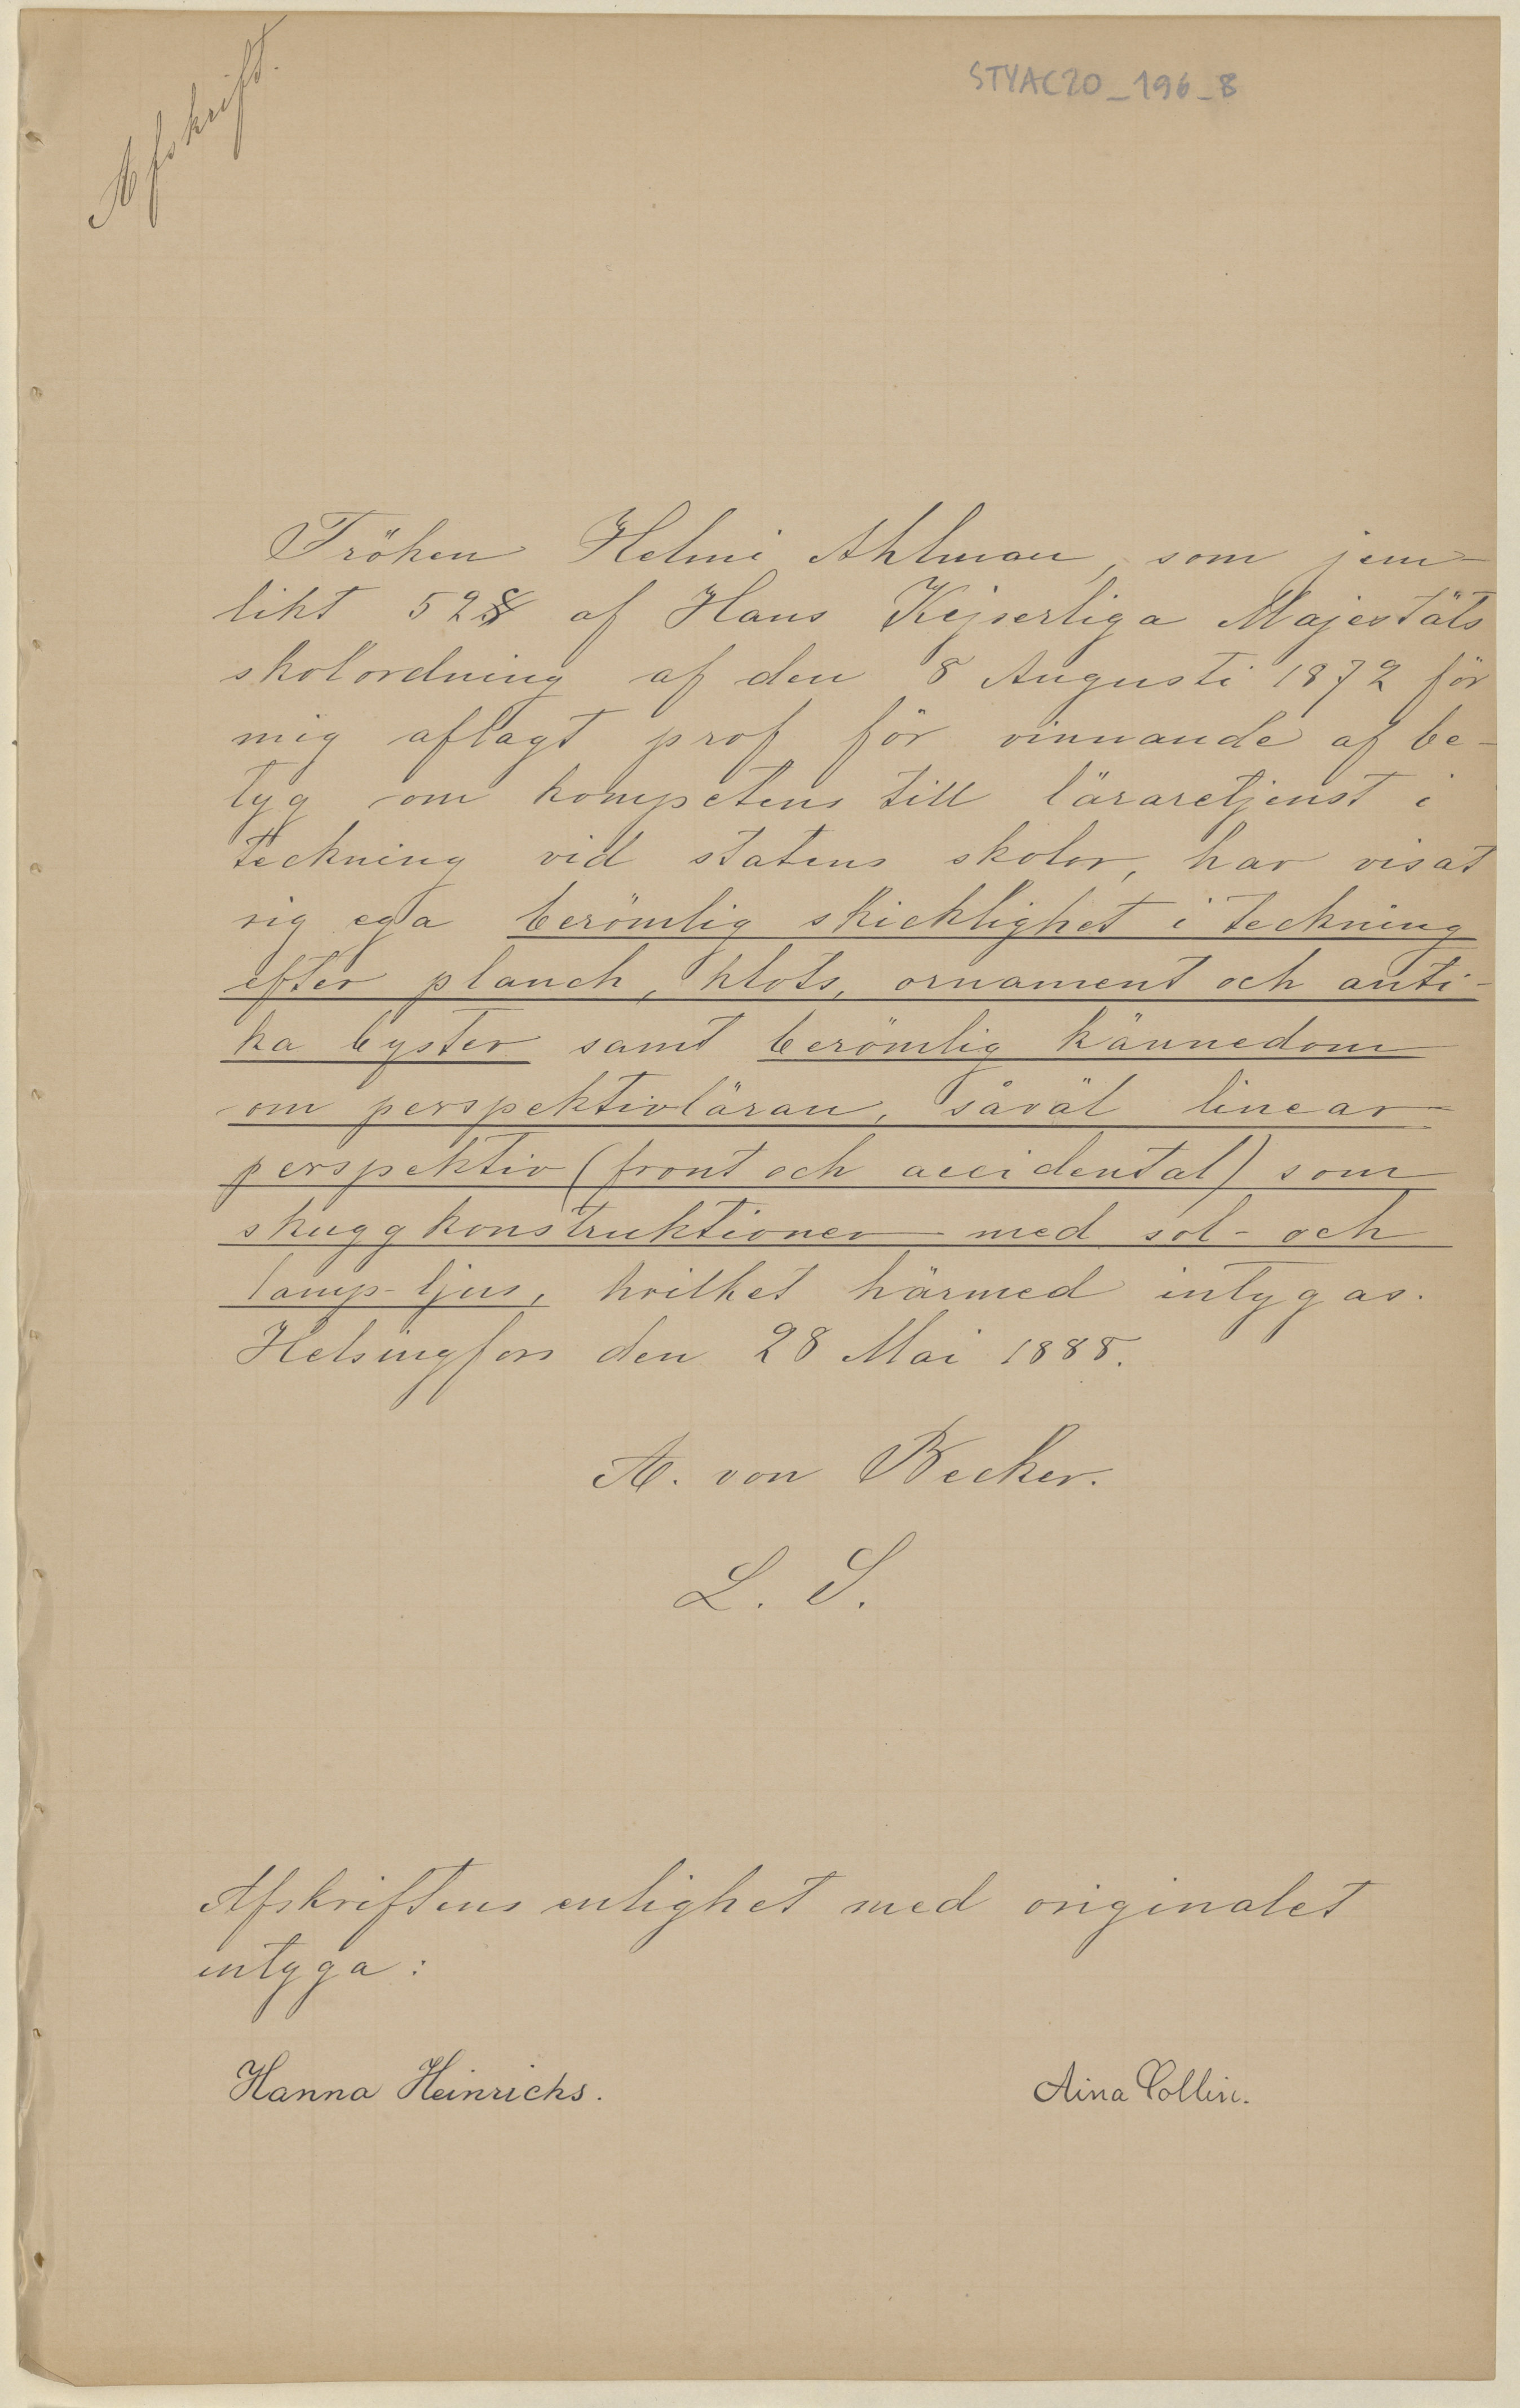 Afskrift.
STYAC20_196_B
Fröken Helmi Ahlman, som jem-
likt 52 § af Hans Kejserliga Majestäts
skolordning af den 8 Augusti 1872 för
mig aflagt prof för vinnande af be-
tyg om kompetens till läraretjenst i
teckning vid statens skolor, har visat
sig ega berömlig skicklighet i teckning
efter planch, klots, ornament och anti-
ka byster samt berömlig kännedom
om perspektivläran, såväl linear-
perspektiv (front och accidental) som
skuggkonstruktioner med sol- och
lamp-ljus, hvilket härmed intygas.
Helsingfors den 28 Mai 1888.
A. von Becker.
L. S.
Afskriftens enlighet med originalet
intyga:
Hanna Heinrichs. Aina Collin.